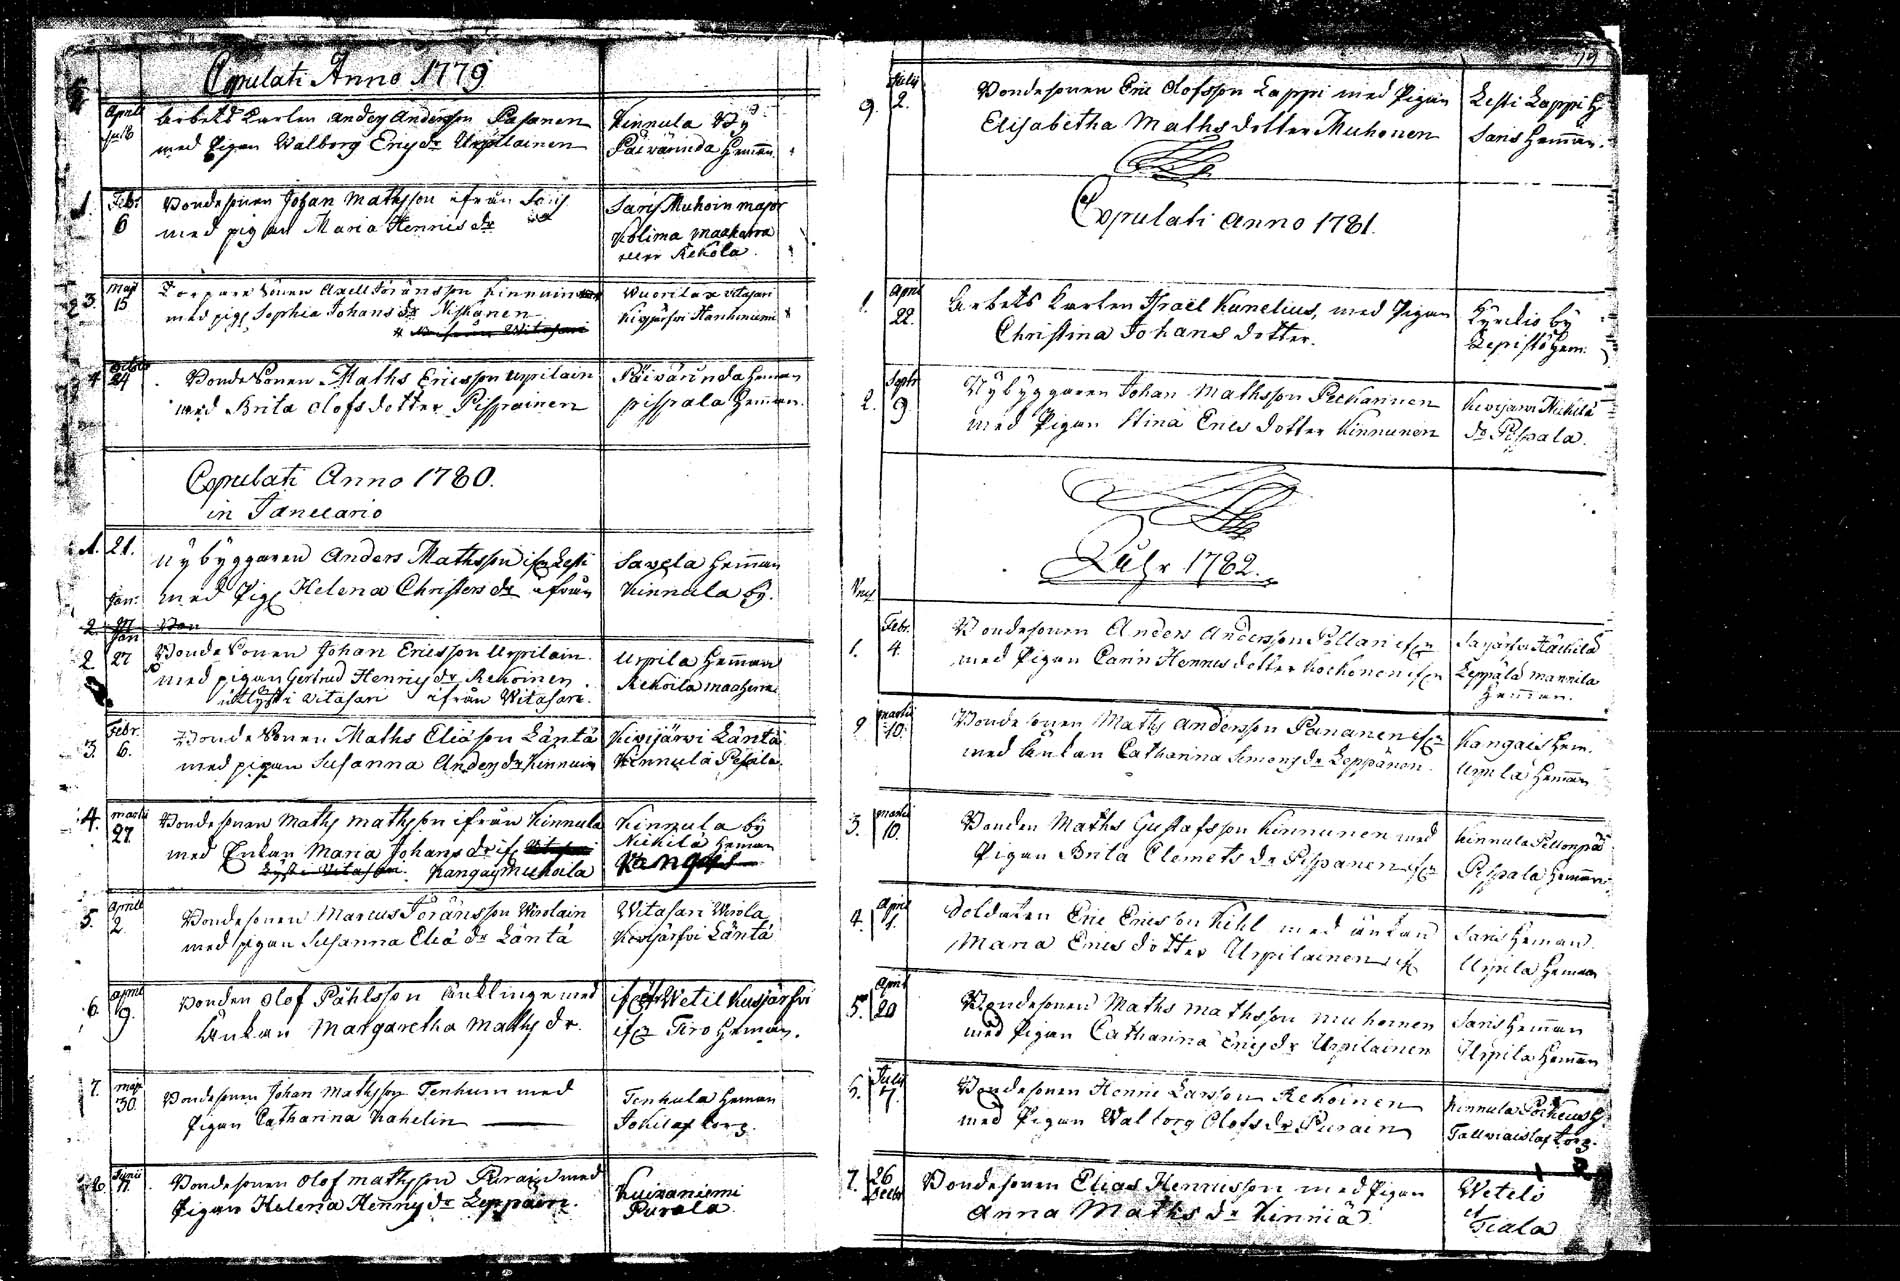 Copulati Anno 1779
Aprill
Arbets Karlen Anders Andersson Pasanen
Kinnula By
med Pigan Walborg Ericsdr Urpilainen
Päivärinda Hemman
1. Febr. 6
Bondesonen Johan Mathsson ifrån Saris
med pigan Maria Henricsdr
Saris Muhoin major
Kolima maakarra
Rekola.
3. Maji 15
Torpare Sonen Axell Göransson Kinnuin
med pig Sophia Johansdr Niskanen
Wuorilax vitasari
Kivijärfvi Hankiniemi
4 24
Bonde Sonen Maths Ericsson Urpilain
med Brita Olofsdotter Pispainen
Päivärinda Heman
pispala Hemman.
Copulati Anno 1780.
in Januario
1. 21. Jan:
Nybyggaren Anders Mathsson ifr Lesti
med Pig Helena Christersdr ifrån
Savela Hemman
Kinnula by.
2. 27 Jan
2 27
Bonde Sonen Johan Ericsson Urpilain.
med pigan Gertrud Henricsdr Rekoinen
vitasari ifrån Witasari.
Urpila Hemman
Rekoila
3. Febr. 6.
Bonde Sonen Maths Eliäson Läntä
med pigan Susanna Andersdr Kinnuin
Kivijärvi Läntä
Kinnula Pesäla.
4. martii 27.
Bondesonen Maths Mathsson ifrån Kinnula
med Enkan Maria Johansdr if
Kangas Muhoila
Kinnula by
Nickilä Heman
Kangas
5. Aprill 2
Bondesonen Marcus Göransson Wirolain
med pigan Susanna Eliä dr Läntä
Witasari Wirola
Kivijärfvi Läntä
6. April 9.
Bonden Olof Påhlsson Änklinge med
Änkan Margaretha Mathsdr.
Wetil Kusjärfvi
Tiro Heman.
7. maji 30.
Bondesonen Johan Mathsson Tenhuin med
Pigan Catharina Kahelin
Tenhula Heman
Jokilax torg.
8. Junii 11.
Bondesonen Olof Mathsson Purain med
Pigan Helena Hennsdr Leppäin.
Kuivaniemi
Purala
9. Julii 2.
Bondesonen Eric Olofsson Lappi med Pigan
Elisabetha Mathsdotter Muhonen
Lesti Lappi H
Saris Hemman.
Copulati Anno 1781.
1. April 22.
Arbets Karlen Israel Kumelius, med Pigan
Christina Johans dotter.
Kyrckio by
Lepistö Hem:
2. Septr 9
Nybyggaren Johan Mathsson Peckarinen
med Pigan Stina Erics dotter Kinnunen
Kivijärvi Nickilä
do Pispala.
Åhr 1782.
1. Febr. 4.
Bondesonen Anders Andersson Pollari
med Pigan Carin Hennes dotter Kockonen
Häckilä
Leppälä mannila
Hemman.
2 martii 10.
Bondesonen Maths Andersson Pananen
med Änkan Catharina Simonsdr Leppänen.
Kangais Hem.
Urpila Hemman
3. martii 10.
Bonden Maths Gustafsson Kinnunen med
Pigan Brita Clemetsdr Pispanen
Kinnula Pellonpää
Pispala Hemman
4. April 1.
Soldaten Eric Ericsson Kihl med änkan
Maria Ericsdotter Urpilainen
Saris Heman.
Urpila Heman
5. April 20
Bondesonen Maths Mathsson Muhoinen
med Pigan Catharina Ericsdr Urpilainen
Saris Hemman
Urpila Hemman
6. Julii 7.
Bondesonen Henric Larsson Rekoinen
med Pigan Walborg Olofsdr Purain
Kinnula
torg.
7. 26 Decbr
Bondesonen Elias Henricsson med Pigan
Anna Mathsdr Kinniä
Wetelö
et
Tiala